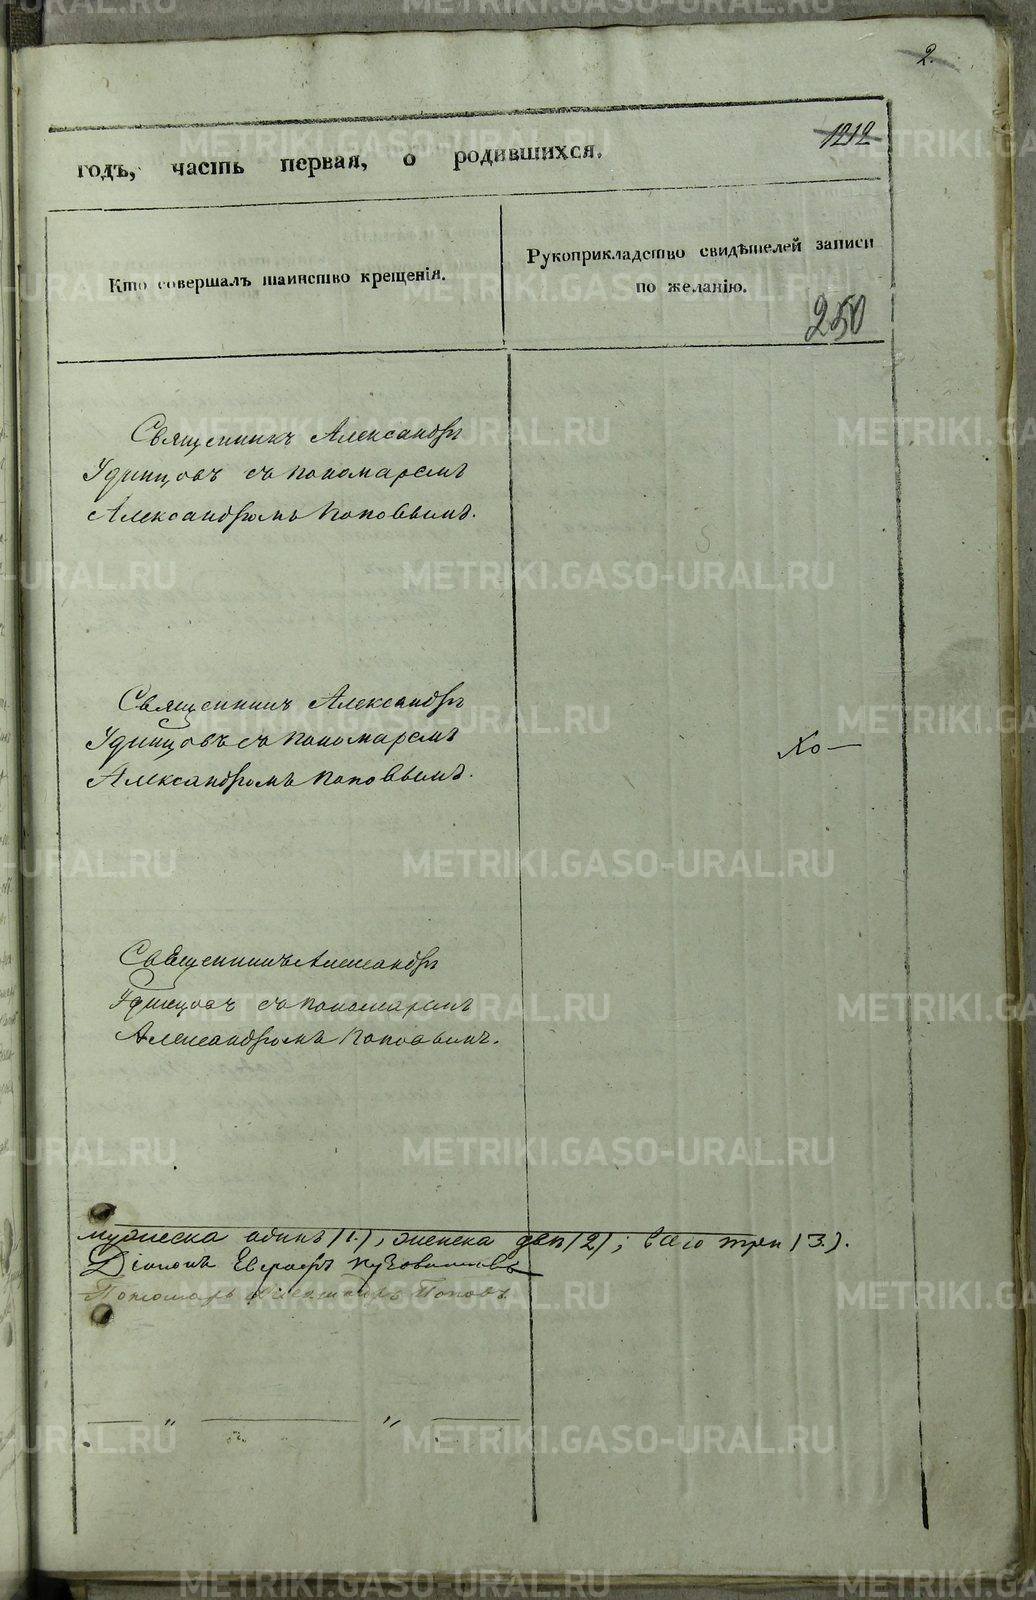 2.
1212
годъ, часть первая, о родившихся.
Кто совершалъ таинство крещенія.
Рукоприкладство свидѣтелей записи
по желанію.
250
Священникъ Александръ
Удинцовъ съ пономаремъ
Александромъ Поповымъ.
Священникъ Александръ
Удинцовъ съ пономаремъ
Александромъ Поповымъ.
Хо—
Священникъ Александръ
Удинцовъ съ пономаремъ
Александромъ Поповымъ.
мужеска одинъ (1.), женска две (2); всего три (3.).
Діаконъ Евграфъ
Пономарь Александръ Поповъ
METRIKI.GASO-URAL.RU